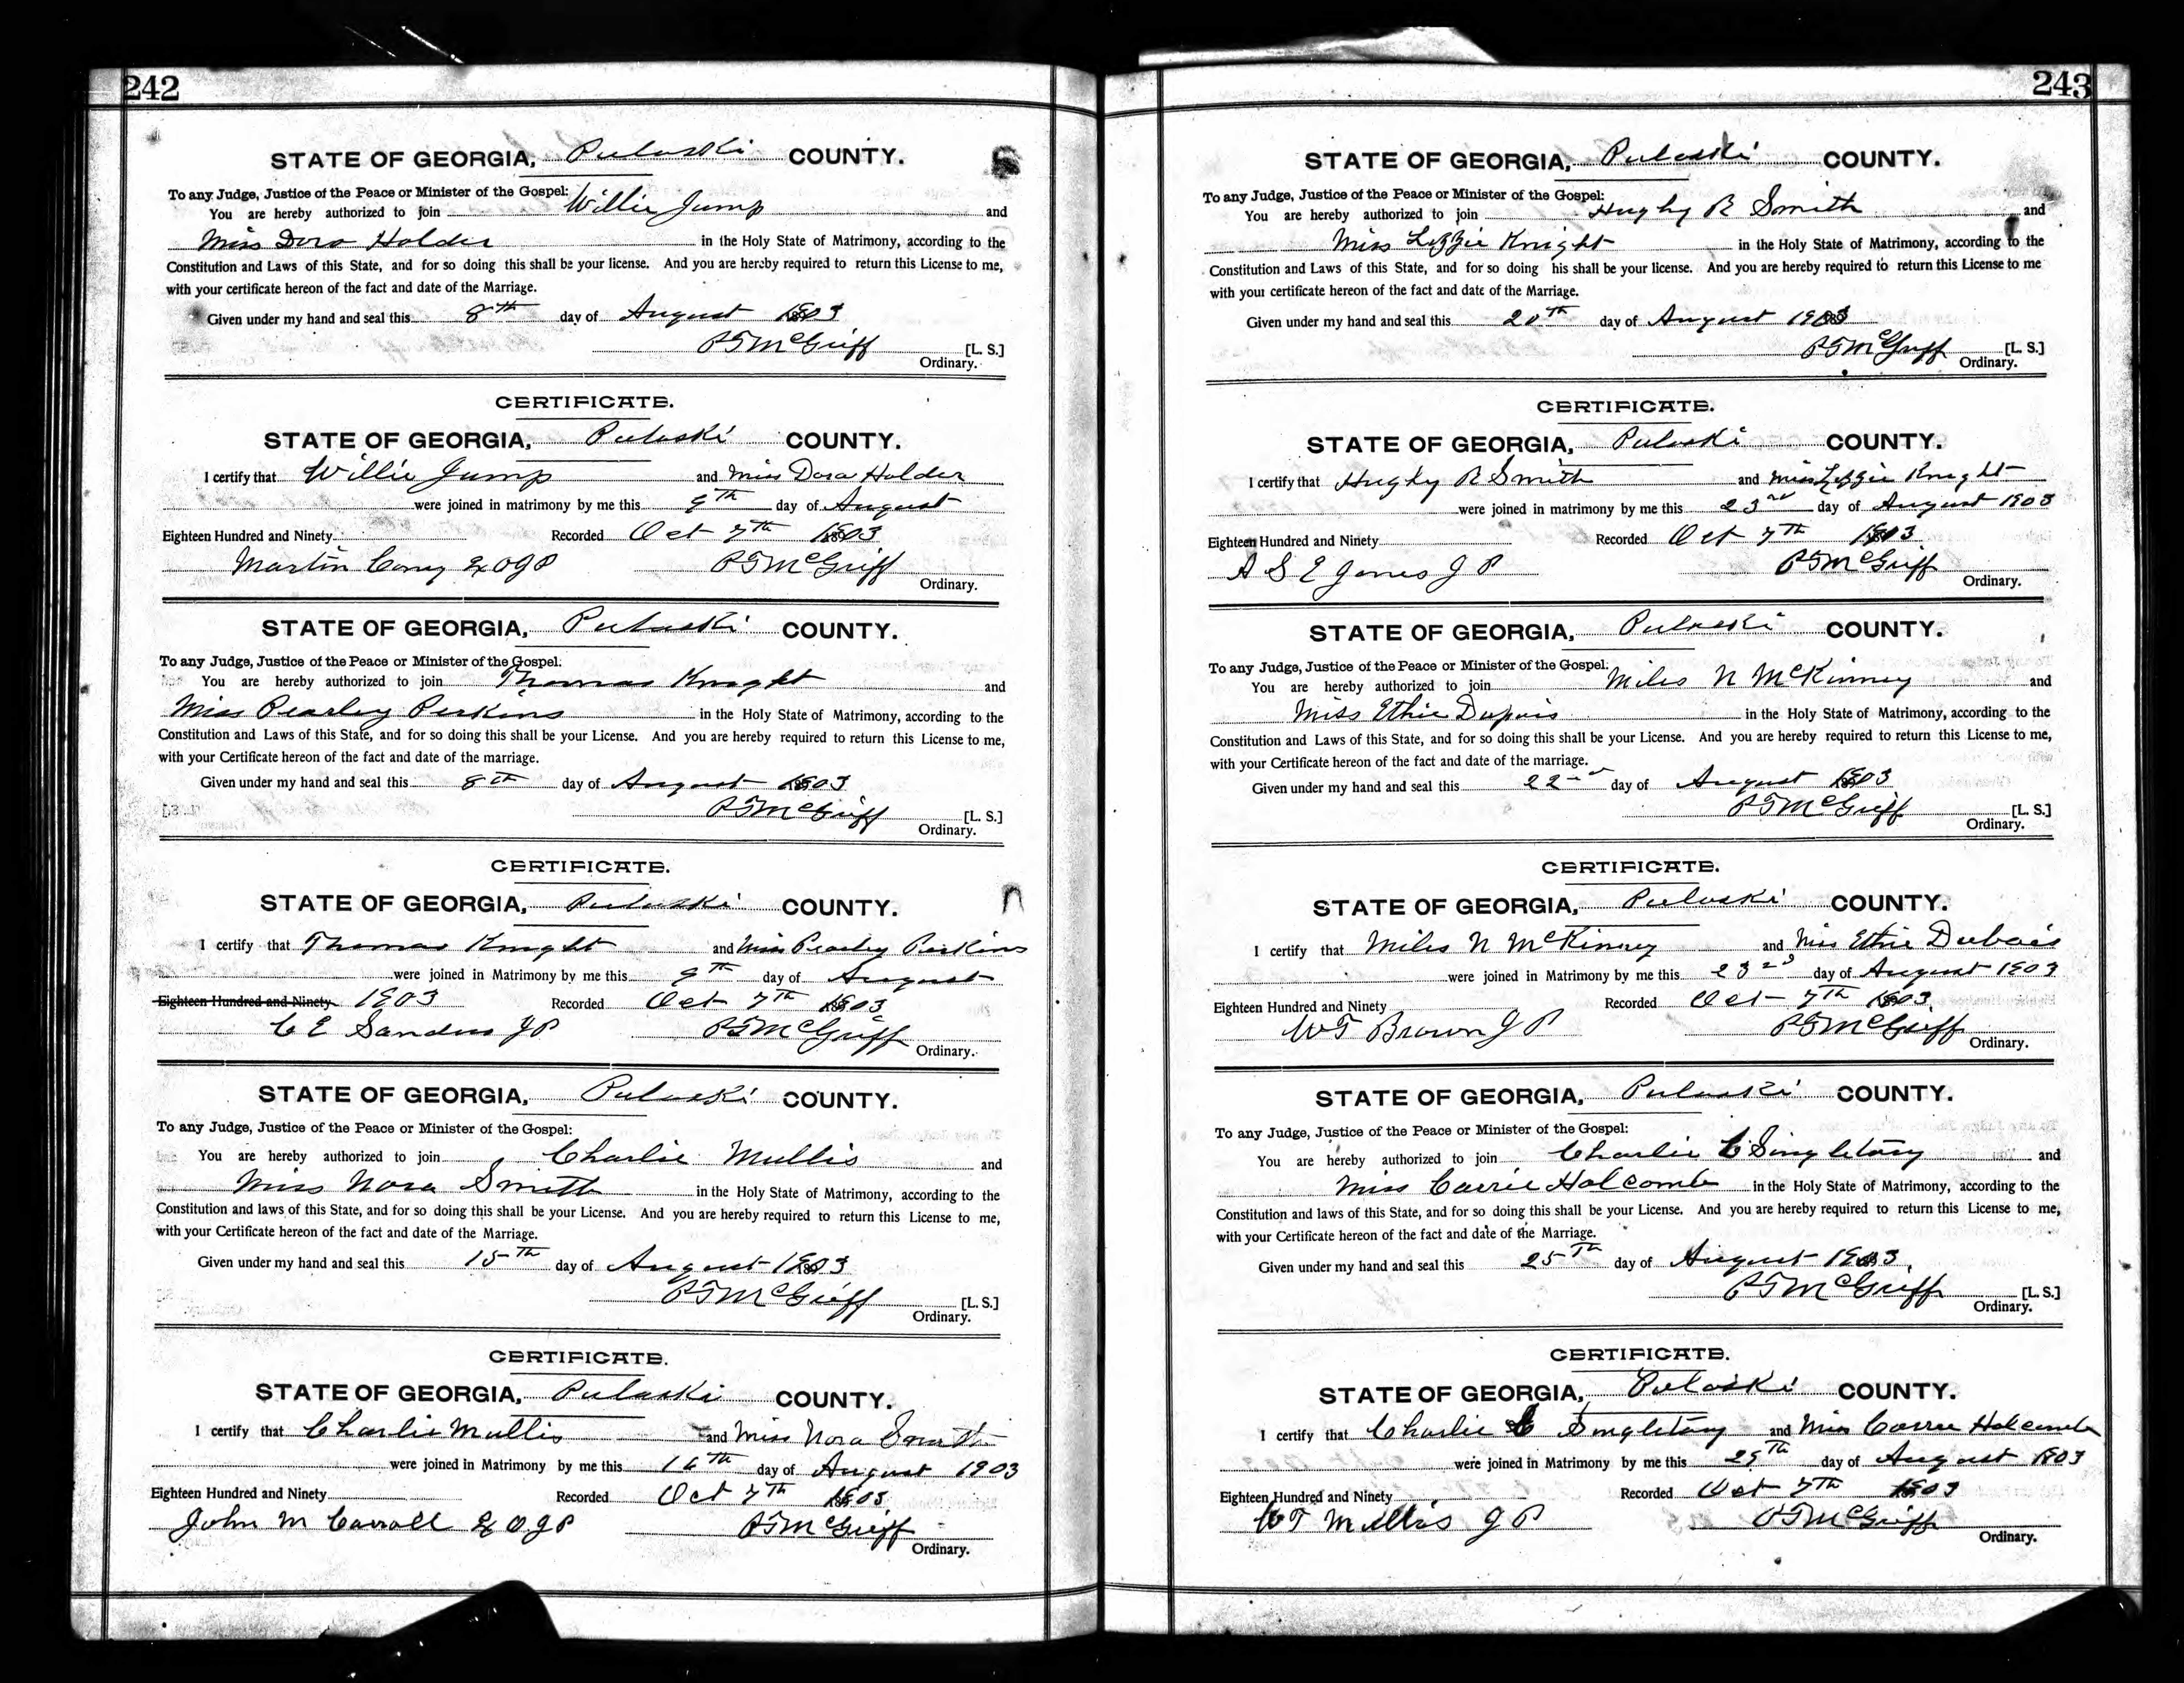 242
STATE OF GEORGIA, Pulaski COUNTY.
To any Judge, Justice of the Peace or Minister of the Gospel:
You are hereby authorized to join Willie Jump and
Miss Dora Holder in the Holy State of Matrimony, according to the
Constitution and Laws of this State, and for so doing this shall be your license. And you are hereby required to return this License to me,
with your certificate hereon of the fact and date of the Marriage.
Given under my hand and seal this 8th day of August 1903
P T McGriff [L. S.]
Ordinary.
CERTIFICATE.
STATE OF GEORGIA, Pulaski COUNTY.
I certify that Willie Jump and Miss Dora Holder
were joined in matrimony by me this 9th day of August
Eighteen Hundred and Ninety Recorded Oct 7th 1903
Martin P T McGriff
Ordinary.
STATE OF GEORGIA, Pulaski COUNTY.
To any Judge, Justice of the Peace or Minister of the Gospel:
You are hereby authorized to join Thomas Knight and
Miss Pearley Perkins in the Holy State of Matrimony, according to the
Constitution and Laws of this State, and for so doing this shall be your License. And you are hereby required to return this License to me,
with your Certificate hereon of the fact and date of the marriage.
Given under my hand and seal this 8th day of August 1903
P T McGriff [L. S.]
Ordinary.
CERTIFICATE.
STATE OF GEORGIA, Pulaski COUNTY.
I certify that Thomas Knight and Miss Pearley Perkins
were joined in Matrimony by me this 9th day of August
Eighteen Hundred and Ninety 1903 Recorded Oct 7th 1903
C E Sanders J P P T McGriff
Ordinary.
STATE OF GEORGIA, Pulaski COUNTY.
To any Judge, Justice of the Peace or Minister of the Gospel:
You are hereby authorized to join Charlie Mullis and
Miss Nora Smith in the Holy State of Matrimony, according to the
Constitution and laws of this State, and for so doing this shall be your License. And you are hereby required to return this License to me,
with your Certificate hereon of the fact and date of the Marriage.
Given under my hand and seal this 15th day of August 1903
P T McGriff [L. S.]
Ordinary.
CERTIFICATE.
STATE OF GEORGIA, Pulaski COUNTY.
I certify that Charlie Mullis and Miss Nora Smith
were joined in Matrimony by me this 16th day of August 1903
Eighteen Hundred and Ninety Recorded Oct 7th 1903
John M Carroll P T McGriff
Ordinary.
243
STATE OF GEORGIA, Pulaski COUNTY.
To any Judge, Justice of the Peace or Minister of the Gospel:
You are hereby authorized to join Hughy R Smith and
Miss Lizzie Knight in the Holy State of Matrimony, according to the
Constitution and Laws of this State, and for so doing his shall be your license. And you are hereby required to return this License to me
with your certificate hereon of the fact and date of the Marriage.
Given under my hand and seal this 20th day of August 1903
P T McGriff [L. S.]
Ordinary.
CERTIFICATE.
STATE OF GEORGIA, Pulaski COUNTY.
I certify that Hughy R Smith and Miss Lizzie Knight
were joined in matrimony by me this 23rd day of August 1903
Eighteen Hundred and Ninety Recorded Oct 7th 1903
A S E Jones J P P T McGriff
Ordinary.
STATE OF GEORGIA, Pulaski COUNTY.
To any Judge, Justice of the Peace or Minister of the Gospel:
You are hereby authorized to join Miles N McKinney and
Miss Ethie Dupuis in the Holy State of Matrimony, according to the
Constitution and Laws of this State, and for so doing this shall be your License. And you are hereby required to return this License to me,
with your Certificate hereon of the fact and date of the marriage.
Given under my hand and seal this 22nd day of August 1903
P T McGriff [L. S.]
Ordinary.
CERTIFICATE.
STATE OF GEORGIA, Pulaski COUNTY.
I certify that Miles N McKinney and Miss Ethie Dubois
were joined in Matrimony by me this 23rd day of August 1903
Eighteen Hundred and Ninety Recorded Oct 7th 1903
W T Brown J P P T McGriff
Ordinary.
STATE OF GEORGIA, Pulaski COUNTY.
To any Judge, Justice of the Peace or Minister of the Gospel:
You are hereby authorized to join Charlie C Singletary and
Miss Carrie Holcomb in the Holy State of Matrimony, according to the
Constitution and laws of this State, and for so doing this shall be your License. And you are hereby required to return this License to me,
with your Certificate hereon of the fact and date of the Marriage.
Given under my hand and seal this 25th day of August 1903
P T McGriff [L. S.]
Ordinary.
CERTIFICATE.
STATE OF GEORGIA, Pulaski COUNTY.
I certify that Charlie C Singletary and Miss Carrie Holcomb
were joined in Matrimony by me this day of August 1903
Eighteen Hundred and Ninety Recorded Oct 7th 1903
W T Mullis J P P T McGriff
Ordinary.